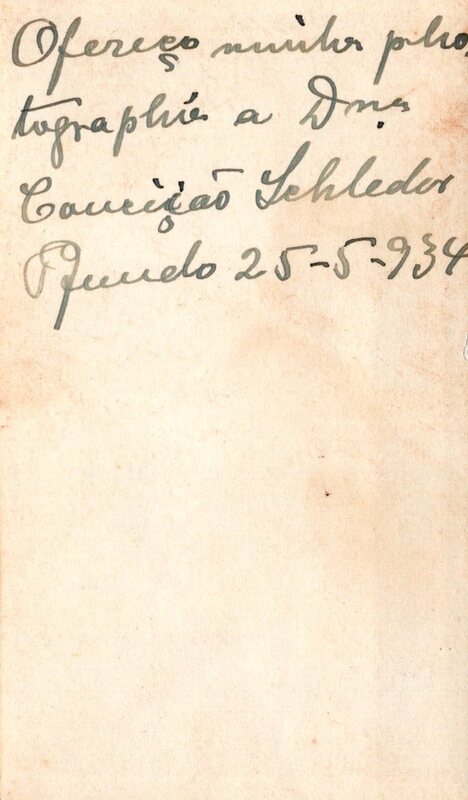 Ofereço minha pho
tographia a Dna
Conceição Schleder
PFundo 25-5-934